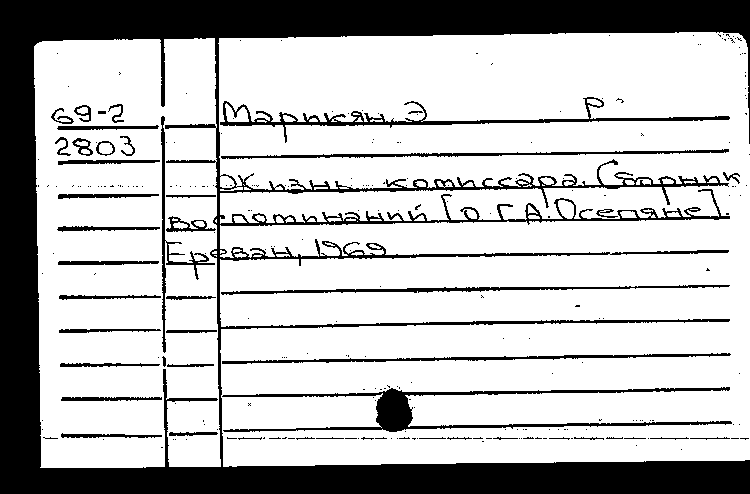 69-2 Марикян, Э р.
2803
Жизнь комиссара. Сборник
воспоминаний [о Г.А. Осепяне].
Ереван, 1969